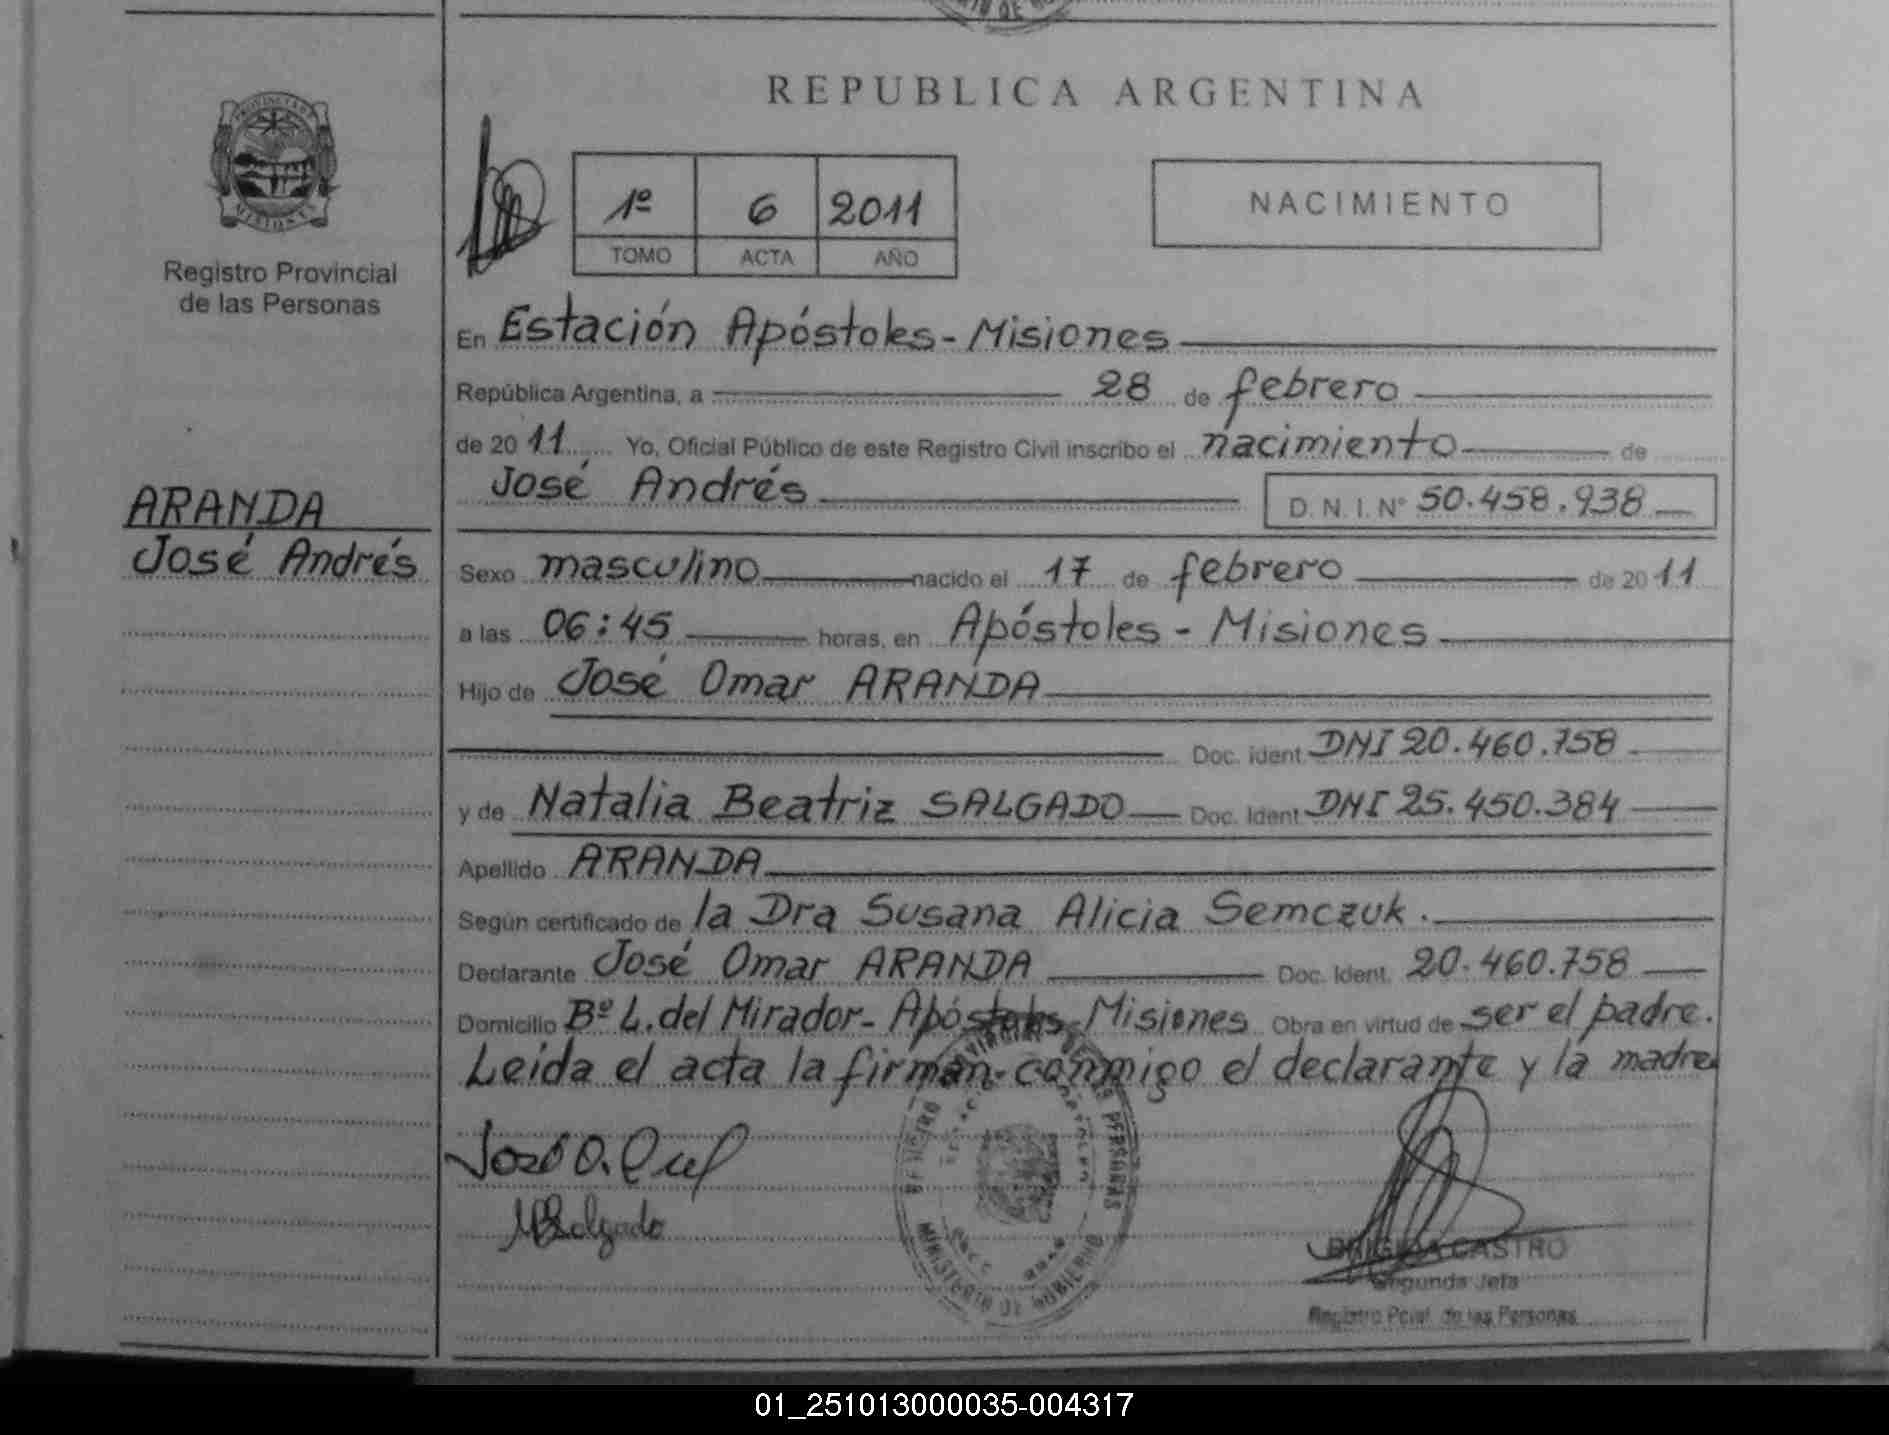 REPUBLICA ARGENTINA
PROVINCIA DE
MISIONES
Registro Provincial
de las Personas
1º 6 2011
TOMO ACTA AÑO
NACIMIENTO
En Estación Apóstoles - Misiones
República Argentina, a 28 de febrero
de 2011 Yo, Oficial Público de este Registro Civil inscribo el nacimiento de
José Andrés D.N.I.Nº 50.458.938
ARANDA
José Andrés
Sexo masculino nacido el 17 de febrero de 2011
a las 06:45 horas, en Apóstoles - Misiones
Hijo de José Omar ARANDA
Doc. ident. DNI 20.460.758
y de Natalia Beatriz SALGADO Doc. Ident DNI 25.450.384
Apellido ARANDA
Según certificado de la Dra Susana Alicia Semczuk.
Declarante José Omar ARANDA Doc. Ident. 20.460.758
Domicilio Bº L. del Mirador - Apóstoles - Misiones Obra en virtud de ser el padre.
Leída el acta la firman conmigo el declarante y la madre
José O.
NBSalgado
REGISTRO PROVINCIAL DE LAS PERSONAS
MINISTERIO DE GOBIERNO
CASTRO
Segunda Jefa
Registro Pcial. de las Personas
01_251013000035-004317